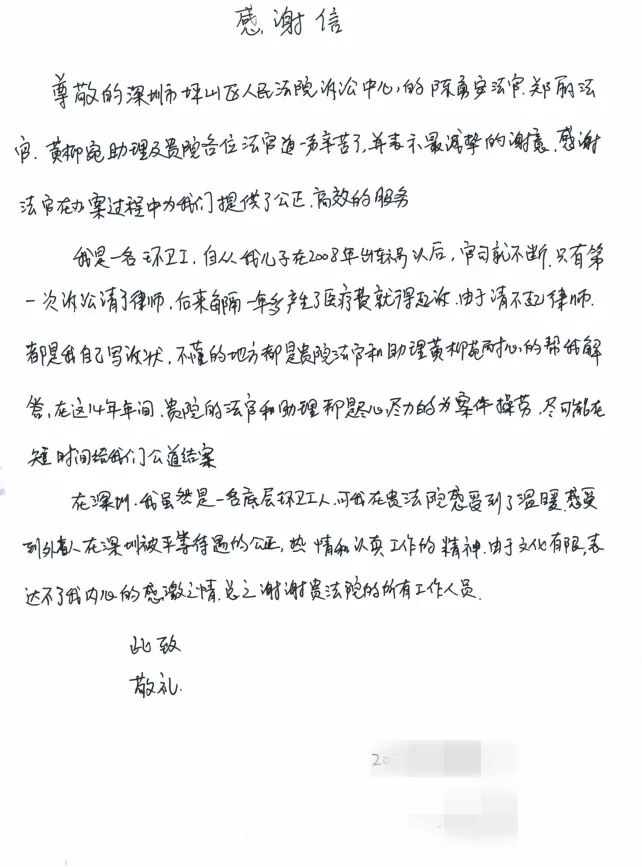 感谢信
尊敬的深圳市坪山区人民法院诉讼中心,的陈勇安法官.郑丽法
官.黄柳宛助理及贵院各位法官道一声辛苦了,并表示最诚挚的谢意.感谢
法官在办案过程中为我们提供了公正.高效的服务
我是一名环卫工,自从我儿子在2008年出车祸以后,官司就不断.只有第
一次诉讼请了律师,后来每隔一年多产生了医疗费就得起诉.由于请不起律师.
都是我自己写诉状,不懂的地方都是贵院法官和助理黄柳宛耐心的帮我解
答,在这14年年间.贵院的法官和助理都是尽心尽力的为案件操劳.尽可能在
短时间给我们公道结案
在深圳.我虽然是一名底层环卫工人,可我在贵法院感受到了温暖.感受
到外省人在深圳被平等待遇的公正,热情和认真工作的精神.由于文化有限,表
达不了我内心的感激之情.总之谢谢贵法院的所有工作人员.
此致
敬礼.
20